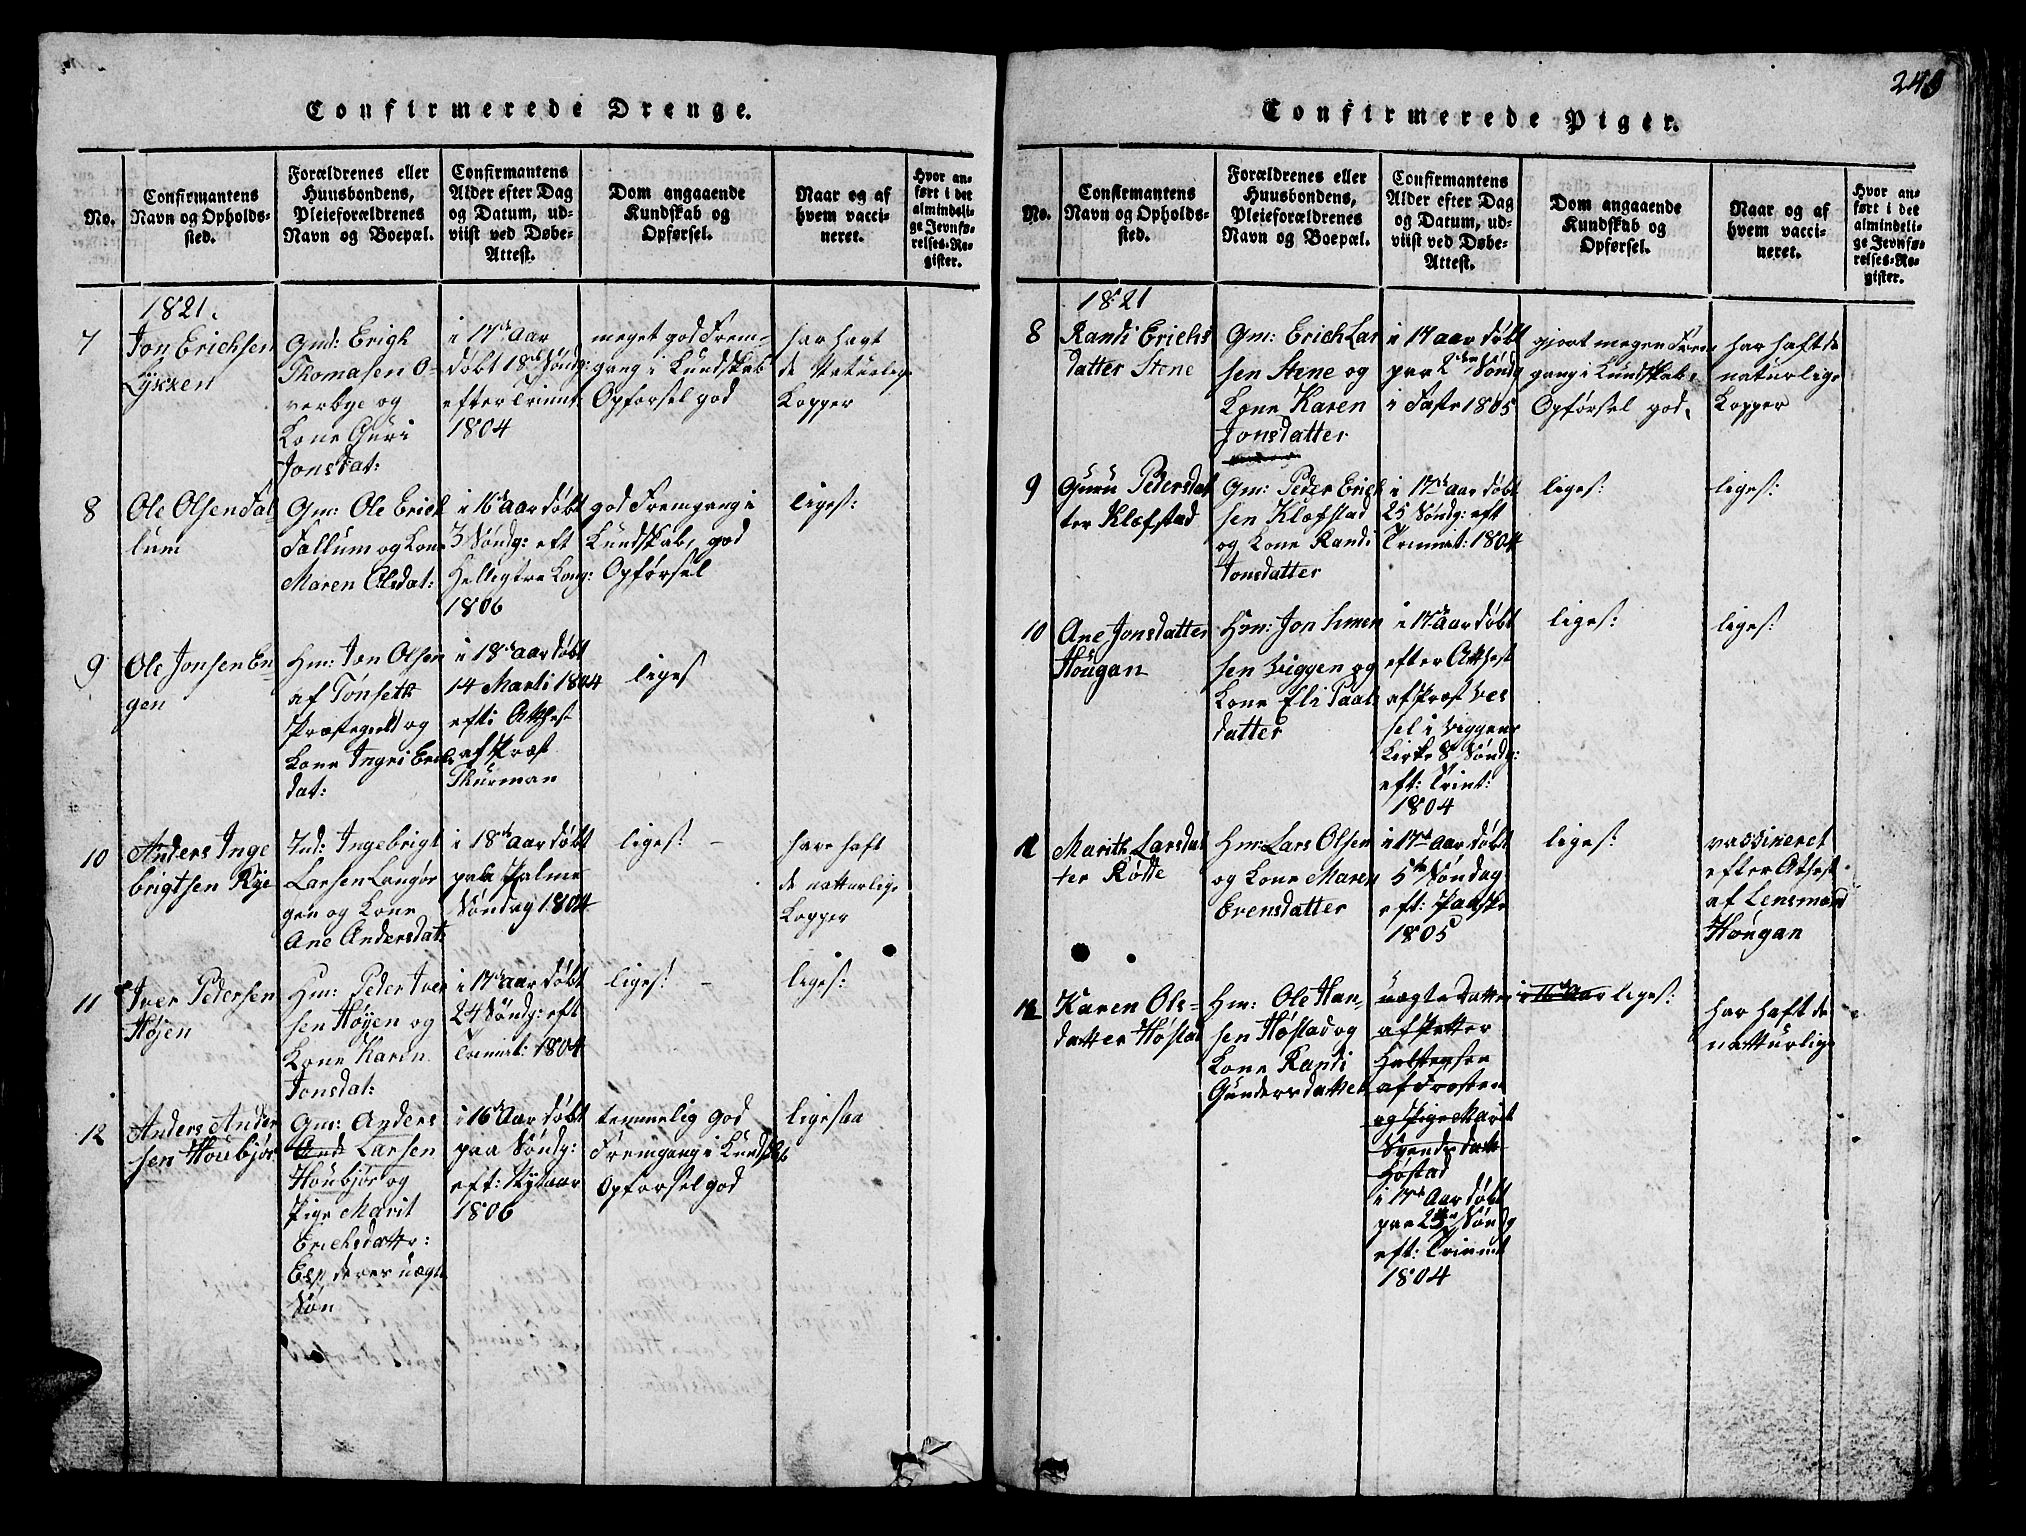 Confirmerede Drenge.
No.
Confirmantens
Navn og Opholds-
sted.
Forældrenes eller
Huusbondens,
Pleieforældrenes
Navn og Boepæl.
Confirmantens
Alder efter Dag
og Datum, ud-
viist ved Døbe-
Attest.
Dom angaaende
Kundskab og
Opførsel.
Naar og af
hvem vacci-
neret.
Hvor an-
ført i det
almindeli-
ge Jevnfø-
relses-Re-
gister.
1821.
7
Jon Erichsen
Lykken
Gmd: Erigh
Thomasen O-
verbye og
Kone Guri
Jonsdat:
i 17de Aar
døbt 18de Søndg:
efter Trinit:
1804
meget god Frem-
gang i Kundskab
Opførsel god
har hagt
de naturlige
Kopper
8
Ole Olsen Fal-
lum
Gm: Ole Erich
Fallum og Kone
Maren Olsdat:
i 16de Aar døbt
3 Søndg: eft
Helligtre Kong:
1806
god Fremgang i
Kundskab, god
Opførsel
liges:
9
Ole Jonsen En-
gen
Hm: Jon Olsen
af Tønseth
Præstegield og
Kone Ingri Erichs
dat:
i 18de Aar døbt
14 Marti 1804
efti Attest
af Præst
Thurman
liges
10
Anders Inge
brigtsen Rye
Ind: Ingebrigt
Larsen Langør
gen og Kone
Ane Andersdat:
i 18de Aar døbt
paa Palme
Søndag 1804
liges: -
have haft
de natturlige
Kopper
11
Iver Pedersen
Høyen
Hm: Peder Iver
sen Høyen og
Kone Karen
Jonsdat:
i 17de Aar døbt
24 Søndg: eft
Trinit: 1804
liges: -
liges:
12
Anders Ander
sen Houbjør
Gm: Anders
And Larsen
Houbjør og
Pige Marit
Erichsdattr:
Esp deres uægte
Søn
i 16de Aar døbt
paa Søndg:
eft: Nytaar
1806
temmelig god
Fremgang i Kundskab
Opførsel god
ligesaa
248
Confirmerede Piger.
No.
Confirmantens
Navn og Opholds-
sted.
Forældrenes eller
Huusbondens,
Pleieforældrenes
Navn og Boepæl.
Confirmantens
Alder efter Dag
og Datum, ud-
viist ved Døbe-
Attest.
Dom angaaende
Kundskab og
Opførsel.
Naar og af
hvem vacci-
neret.
Hvor an-
ført i det
almindeli-
ge Jevnfø-
relses-Re-
gister.
1821
8
Randi Erichs
datter Stene
Gm: Erich Lar
sen Stene og
Kone Karen
Jonsdatter
i 17 Aar døbt
paa 2den Søndg
i Faste 1805
gjort megen Frem
gang i Kundskab,
Opførsel god.
har haft de
naturlige
Kopper
9
Guru Pedersdat
ter Klæfstad
Gm: Peder Erich
sen Klæfstad
og Kone Randi
Jonsdatter
i 17de Aar døbt
25 Søndg: eft
Trinit: 1804
liges:
liges:
10
Ane Jonsdatter
Hougan
Hm: Jon Simen
sen Viggen og
Kone Eli Paals
datter
i 17de Aar døbt
efter Attest
af Præst Ves
sel i Viggens
Kirke 8de Søndg:
eft: Trint:
1804
liges:
liges:
11
Marith Larsdat
ter Rødde
Hm: Lars Olsen
og Kone Maren
Evensdatter
i 17de Aar døbt
5te Søndag
eft: Paaske
1805
liges:
vassineret
efter Attest
af Lensmand
Hougan
12
Karen Ols-
datter Høstad
Hm: Ole Han-
sen Høstad og
Kone Randi
Gundersdatter
uægte Datter
af Petter
af Frosten
og Pige Marit
Svendsdatt
Høstad
i 17de Aar døbt
paa 23de Søndg
eft: Trinit
1804
i 16de Aar liges:
har haft de
natturlige